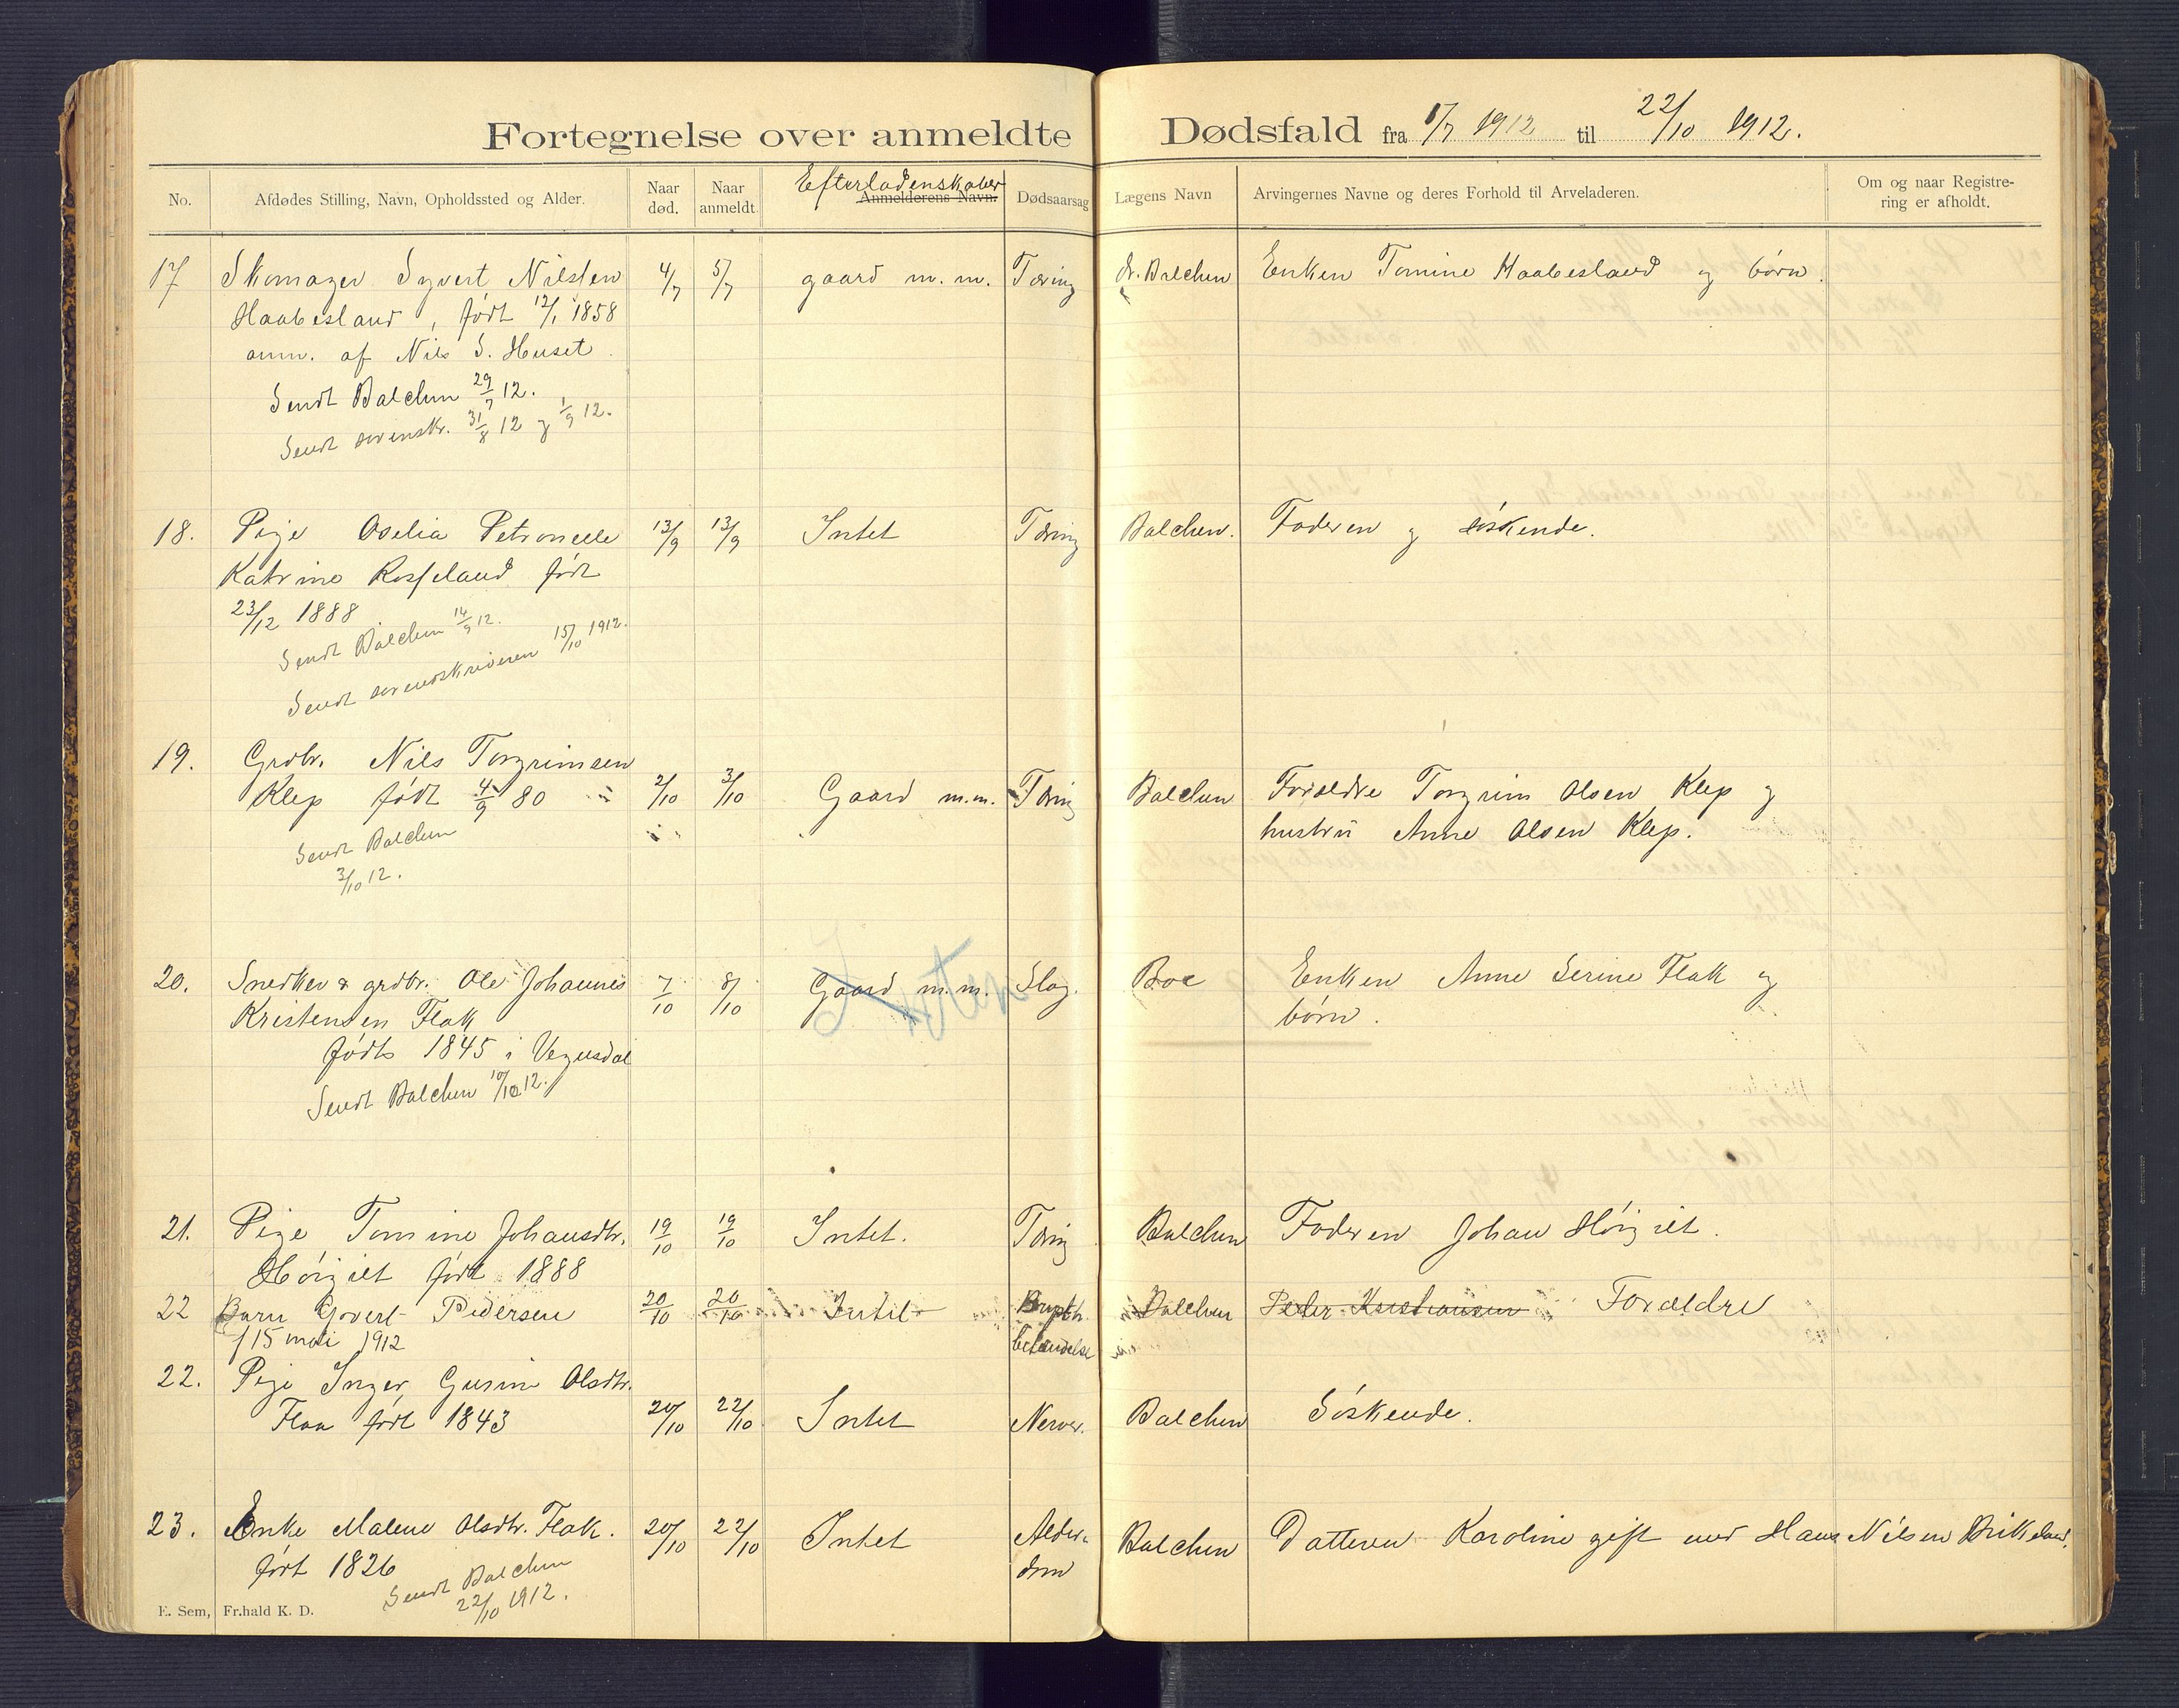 Fortegnelse over anmeldte Dødsfald fra 1/7 1912 til 22/10 1912.
No. Afdødes Stilling, Navn, Opholdssted og Alder. Naar død. Naar anmeldt. Efterladenskaber Anmelderens Navn. Dødsaarsag Lægens Navn Arvingernes Navne og deres Forhold til Arveladeren. Om og naar Registrering er afholdt.
17 Skomager Syvert Nilsen 4/7 5/7 gaard m.m. Tæring dr. Balchen Enken Tomine Haabesland og børn.
Haabesland, født 12/1 1858
anm. af Nils S. Huset
Sendt Balchen 29/7 12.
Sendt sorenskr. 31/8 12 og 1/9 12.
18. Pige Oselia Petronelle 13/9 13/9 Intet Tæring Balchen. Faderen og søskende.
Katrine Rosseland født
23/12 1888
Sendt Balchen 14/9 12.
Sendt sorenskriveren 15/10 1912.
19. Grdbr. Nils Torgrimsen
Klep født 4/9 80 2/10 3/10 Gaard m.m. Tæring Balchen Forældre Torgrim Olsen Klep og
hustru Anne Olsen Klep.
Sendt Balchen
3/10 12.
20. Snedker & grdbr. Ole Johannes 7/10 8/10 Gaard m.m. Intet Slag. Boe Enken Anne Serine Flak og
Kristensen Flak børn.
født 1845 i Vegusdal
Sendt Balchen 10/10 12.
21. Pige Tomine Johansdtr. 19/10 19/10 Intet. Tæring Balchen Faderen Johan Høigilt.
Høigilt født 1888
22 Barn Govert Pedersen 20/10 20/10 Intet Balchen Peder Kristiansen Forældre
f 15 mai 1912
22. Pige Inger Gurine Olsdtr.
Flaa født 1843 20/10 22/10 Intet Nerver. Balchen Søskende.
23. Enke Malene Olsdtr. Flak. 20/10 22/10 Intet Alderdom Balchen Datteren Karoline gift med Hans Nilsen Birkeland.
født 1826
Sendt Balchen
22/10 1912.
E. Sem, Fr.hald K. D.